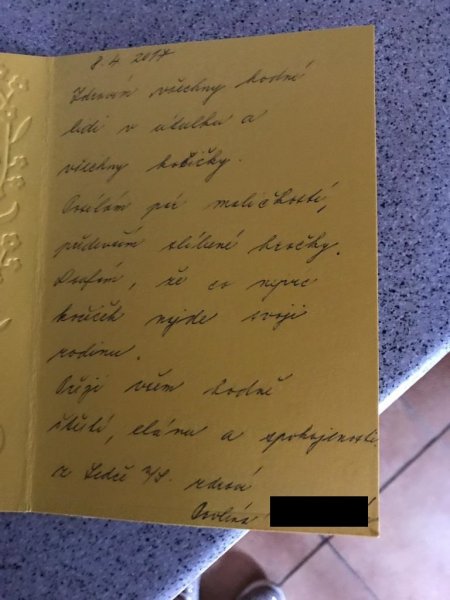 8.4.2017
Zdravím všechny hodné
lidi v útulku a
všechny kočičky.
Posílám pár maličkostí,
především slíbené hračky.
Doufám, že co nejvíc
kočiček najde svoji
rodinu.
Přeji všem hodně
štěstí, elánu a spokojenosti
z Ledče n/S. zdraví
Pavlína